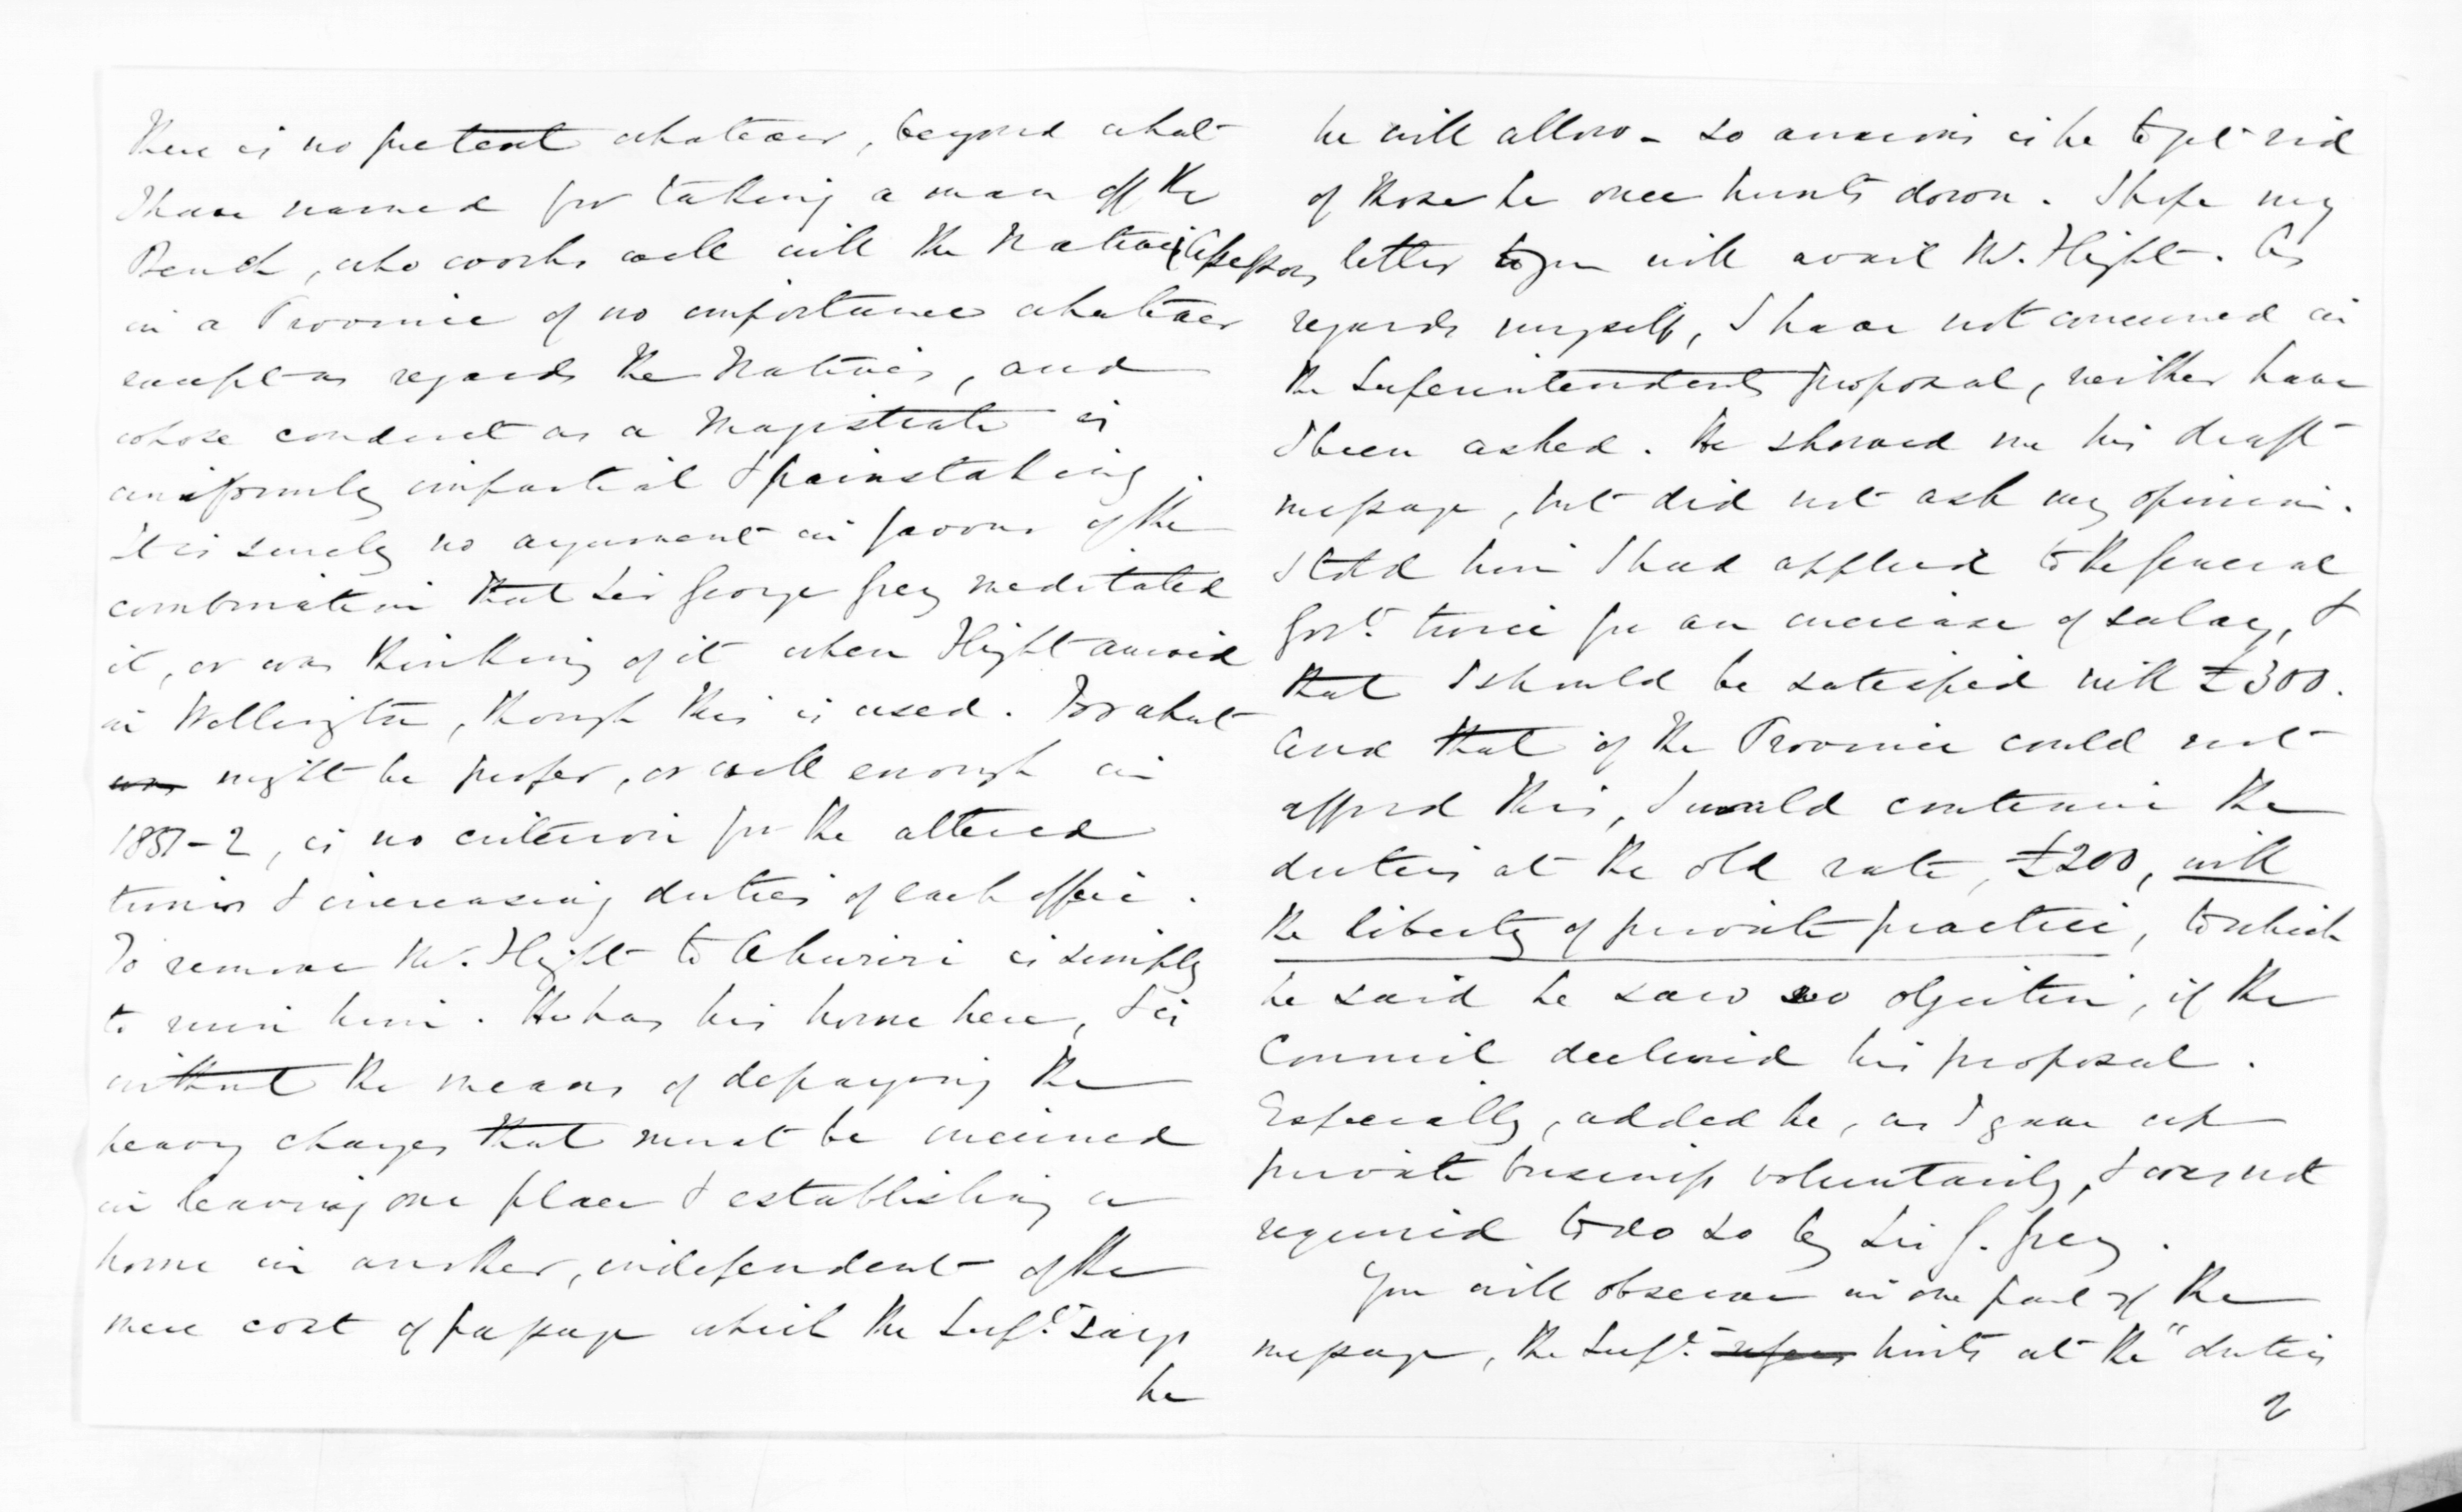 There is no pretext whatever, beyond what
I have named for taking a man off the
Bench, who works well with the Native Assessors,
in a Province of no importance whatever
except as regards the Natives, and
whose conduct as a Magistrate is
uniformly impartial & painstaking.
It is surely no argument in favour of the
combination that Sir George Grey meditated
it, or was thinking of it when Flight arrived
in Wellington, though this is used. For what
was might be proper, or well enough in
1851-2, is no criterion for the altered
times & increasing duties of each office.
To remove Mr. Flight to Ahuriri is simply
to ruin him. He has his home here, & is
without the means of defraying the
heavy charges that must be incurred
in leaving one place & establishing a
home in another, independent of the
mere cost of passage which the Supt. says
he
he will allow - so anxious is he to get rid
of those he once hunts down. I hope my
letter to you will avail Mr. Flight. As
regards myself, I have not concurred in
the Superintendents proposal, neither have
I been asked. He showed me his draft
message, but did not ask my opinion.
I told him I had applied to the General
Govt. twice for an increase of salary, &
that I should be satisfied with £300.
And that if the Province could not
afford this, I would continue the
duties at the old rate, £200, with
the liberty of private practice, to which
he said he saw no objection, if the
Council declined his proposal.
Especially, added he, as I gave up
private business voluntarily, & was not
required to do so by Sir G. Grey.
You will observe in one part of the
message, the Supt. refers hints at the "duties
2